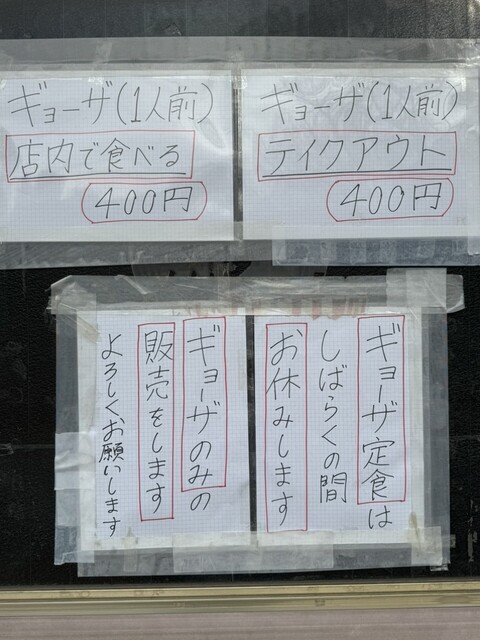 ギョーザ(1人前)
店内で食べる
400円
ギョーザ(1人前)
テイクアウト
400円
ギョーザ定食は
しばらくの間
お休みします
ギョーザのみの
販売をします
よろしくお願いします